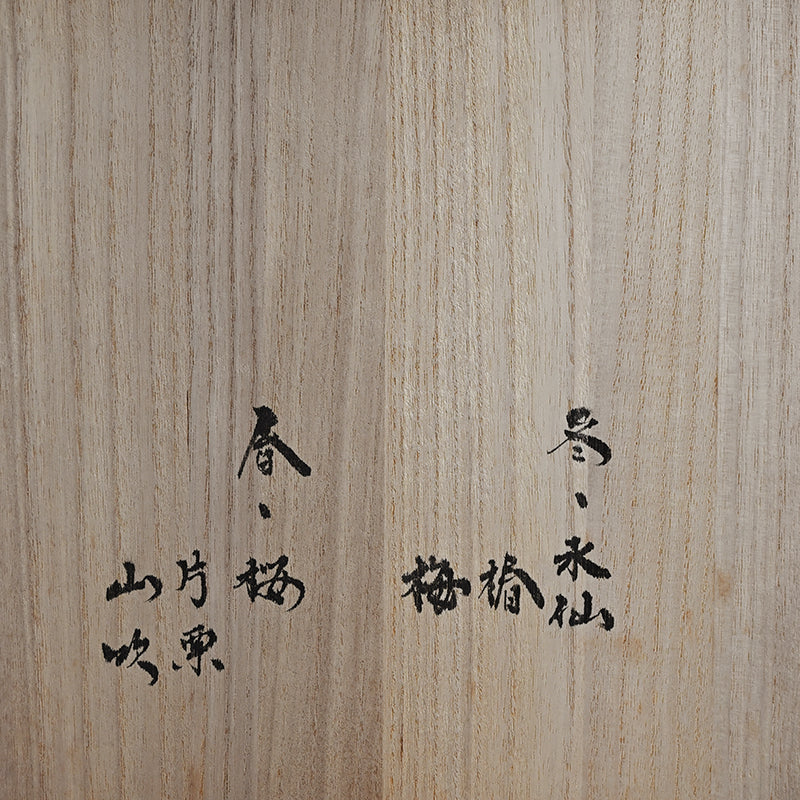 冬、水仙
椿
梅
春、桜
片栗
山吹